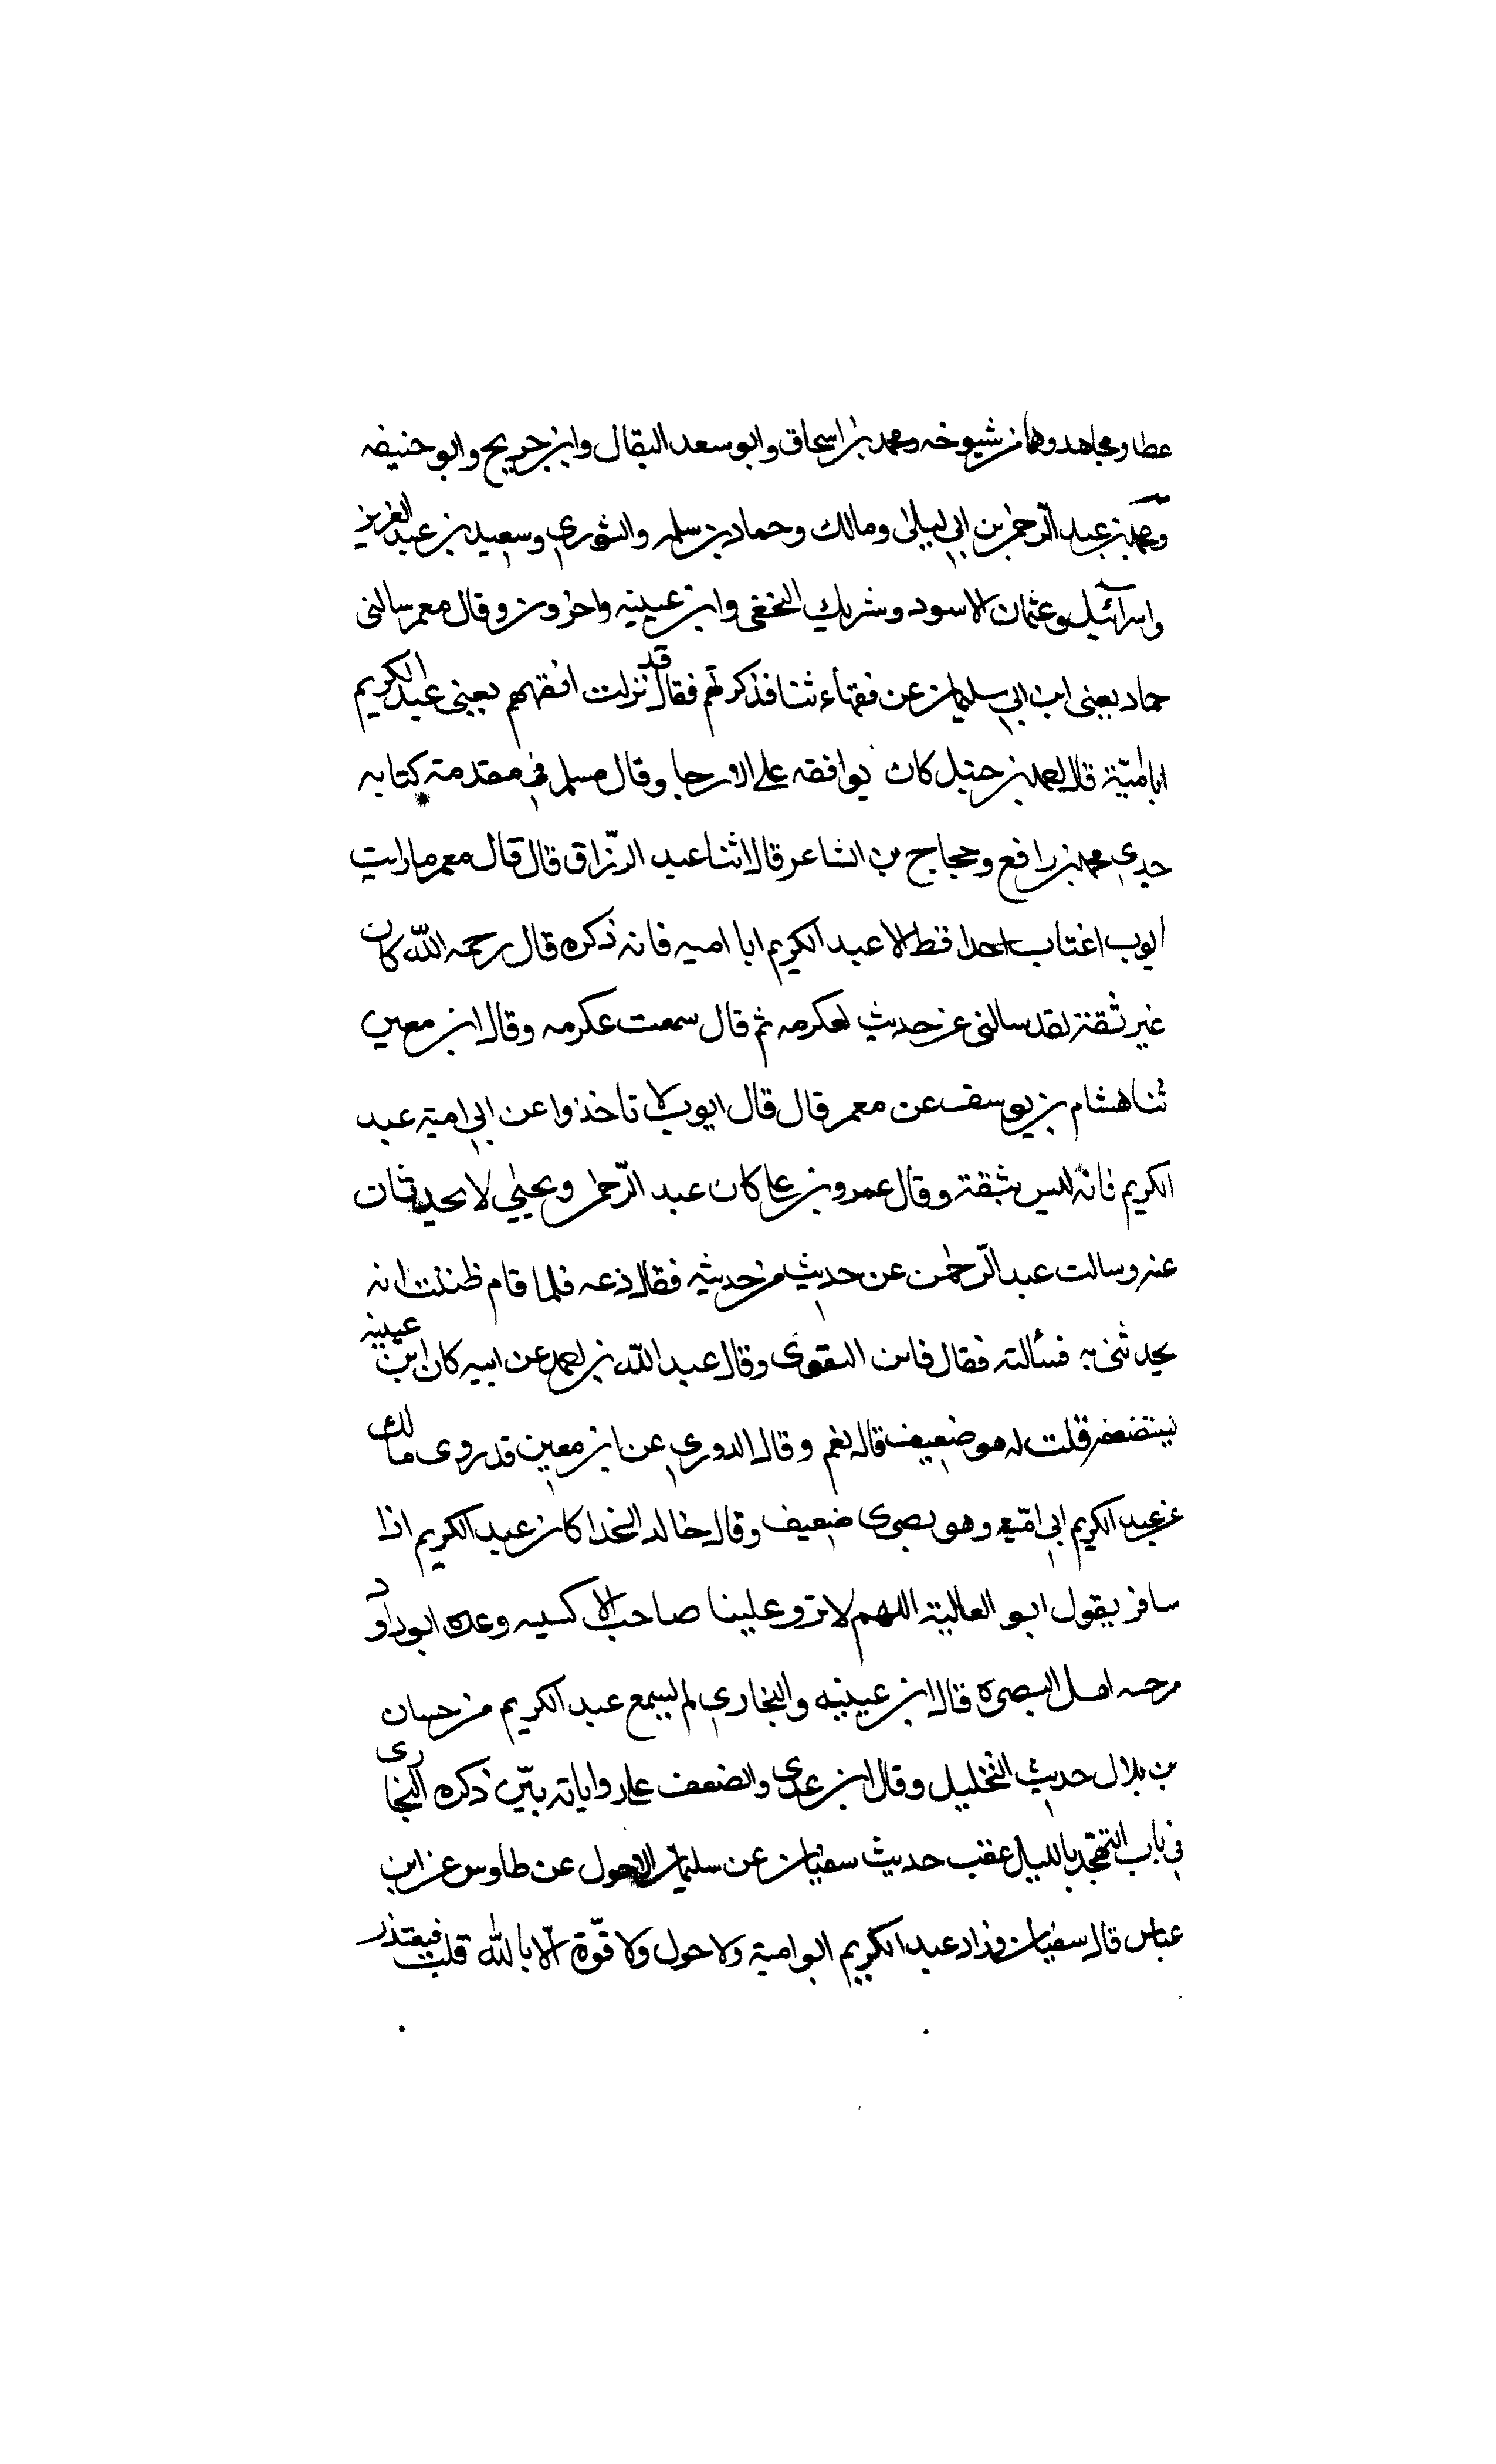 عطا ومجاهد وهما من شيوخه ومحمد بن اسحاق وابو سعد البقال وابن جريج وابو حنيفه
ومحمد بن عبد الرّحمن بن ابي ليلى ومالك وحماد بن سلمه والثوري وسعيد بن عبد العزيز
واسرآئيل وعثمان الاسود وشريك النخعي وابن عيينه واخرون وقال معمر سالنى
حماد يعني ابن ابي سليمان عن فقهاء ثنا فذكرتهم فقال قد تزلت افقههم يعني عبد الكريم
ابا اميّة قال احمد بن حنبل كان يوافقه على الارجا وقال مسلم في مقدمة كتابه
حدي محمد بن رافع وحجاج بن الشاعر قالا ثنا عبد الرّزاق قال قال معمر ما رايت
ايوب اغتاب احدا قط الا عبد الكريم ابا اميه فانه ذكره قال رحمه الله كان
غير ثقة لقد سالنى عن حديث لعكرمه ثم قال سمعت عكرمه وقال ابن معين
ثنا هشام بن يوسف عن معمر قال قال ايوب لا تاخذوا عن ابي امية عبد
الكريم فانه ليس بثقة وقال عمرو بن علي كان عبد الرّحمن ويحيي لا يحدثان
عنه وسالت عبد الرّحمن عن حديث من حديثه فقال دعه فلما قام ظننت انه
يحدثنى به فسألته فقال فاين التقوى وقال عبد الله بن احمد عن ابيه كان ابن عيينه
يستضعفه قلت له هو ضعيف قال نعم وقال الدوري عن ابن معين قد روى مالك
عن عبد الكريم ابي اميّه وهو بصرى ضعيف وقال خالد الحذا كان عبد الكريم اذا
سافر يقول ابو العالية اللهم لا ترو علينا صاحب الاكسيه وعده ابو داود
من اهل البصرة قال ابن عيينه والبخاري لم يسمع عبد الكريم من حسان
بن بلال حديث التخليل وقال ابن عدي والضعف على رواياته بيّن ذكره البخارى
في باب التهجّد بالليل عقب حديث سفيان عن سليمان الاحول عن طاوس عن ابن
عباس قال سفيان وزاد عبد الكريم ابو امية ولا حول ولا قوّة الّا بالله قلت فيعتذر